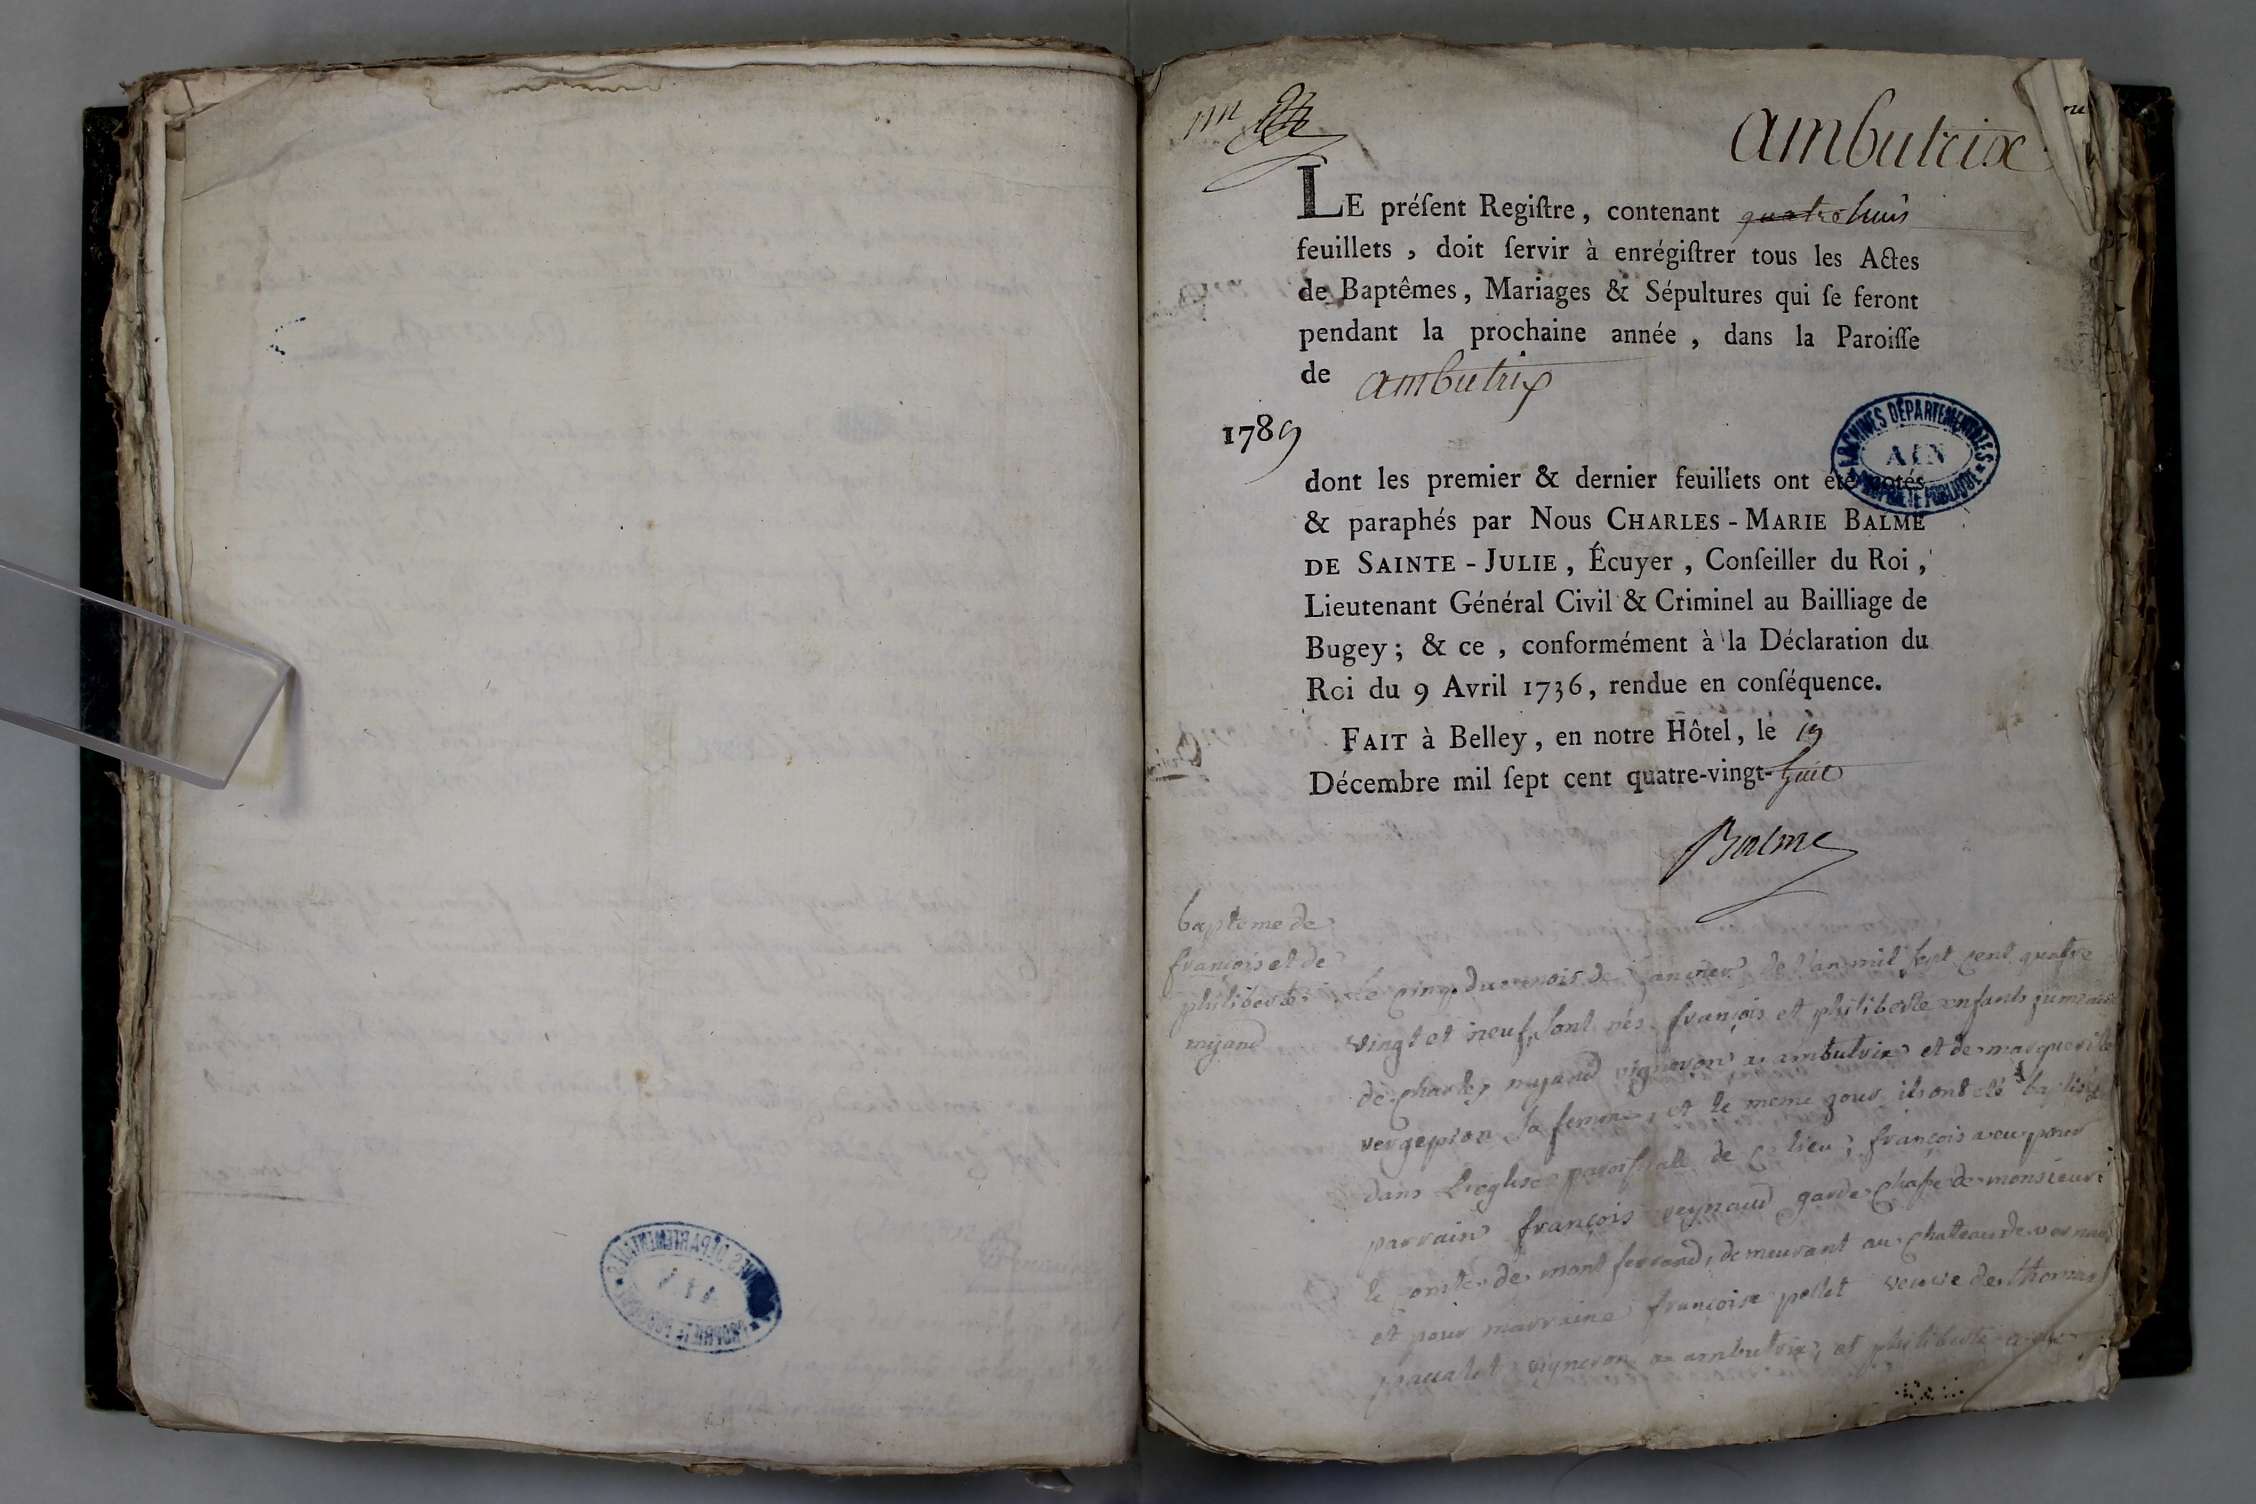 ambutrix
LE préſent Regiſtre, contenant quatre huit
feuillets, doit ſervir à enrégiſtrer tous les Actes
de Baptêmes, Mariages & Sépultures qui ſe feront
pendant la prochaine année, dans la Paroiſſe
de ambutrix
1789
ARCHIVES DÉPARTEMENTALES
AIN
PROPRIÉTÉ PUBLIQUE
dont les premier & dernier feuillets ont été cotés
& paraphés par Nous CHARLES-MARIE BALME
DE SAINTE-JULIE, Écuyer, Conſeiller du Roi,
Lieutenant Général Civil & Criminel au Bailliage de
Bugey; & ce, conformément à la Déclaration du
Roi du 9 Avril 1736, rendue en conſéquence.
FAIT à Belley, en notre Hôtel, le
Décembre mil ſept cent quatre-vingt-huit
Balme
bapteme de
françois et de
philiberte
mijand
le cinq du mois de janvier de l'an mil sept cent quatre
vingt et neuf, sont nés françois et philiberte enfants jumeaux
de charles mijand vigneron a ambutrix et de marguerite
sa femme, et le meme jour ils ont eté baptisés
dans l'eglise paroissialle de ce lieu; françois a eu pour
parrain françois reynaud garde chasse de monsieur
le comte de mont ferrand, demeurant au chateau de
et pour marraine françoise pellet veuve de thomas
vigneron a ambutrix, et philiberte a eu
ARCHIVES DÉPARTEMENTALES
AIN
PROPRIÉTÉ PUBLIQUE